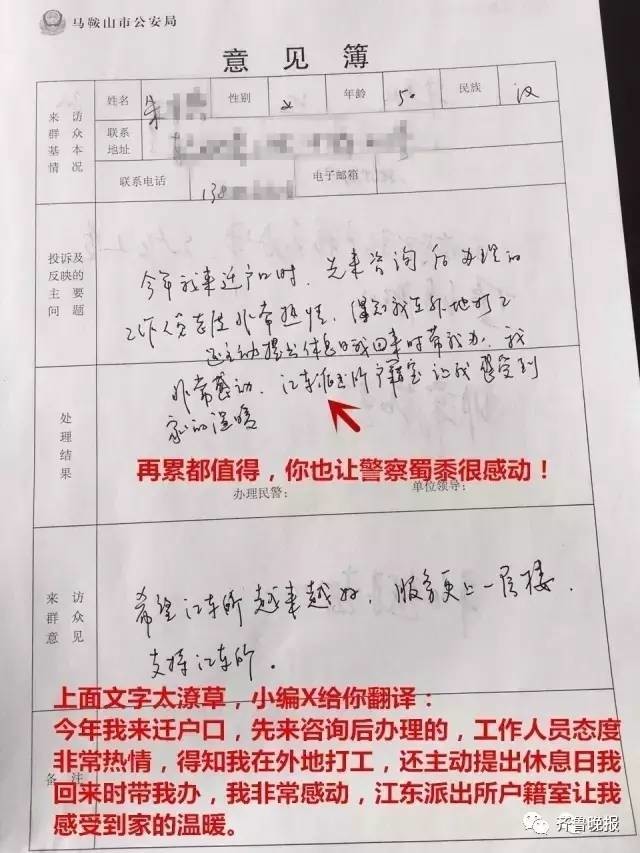 马鞍山市公安局
意见簿
来访群众基本情况
姓名 朱
性别 女
年龄 50
民族 汉
联系地址
联系电话 138
电子邮箱
投诉及反映的主要问题
今年我来迁户口时，先来咨询后办理的
工作人员态度非常热情，得知我在外地打工
还主动提出休息日我回来时帮我办，我
非常感动，江东派出所户籍室让我感受到
家的温暖
处理结果
再累都值得，你也让警察蜀黍很感动！
办理民警：
单位领导：
来访群众意见
希望江东所越来越好，服务更上一层楼，
支持江东所。
上面文字太潦草，小编X给你翻译：
今年我来迁户口，先来咨询后办理的，工作人员态度
非常热情，得知我在外地打工，还主动提出休息日我
回来时带我办，我非常感动，江东派出所户籍室让我
感受到家的温暖。
备注
齐鲁晚报